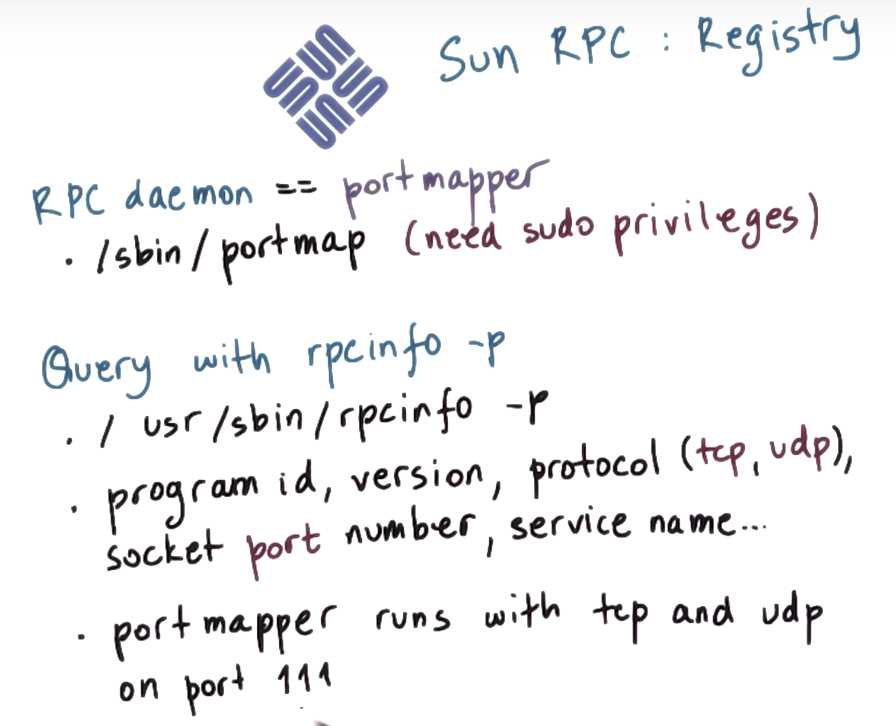 Sun RPC : Registry
RPC daemon == portmapper
· /sbin/portmap (need sudo privileges)
Query with rpcinfo -p
· /usr/sbin/rpcinfo -p
· program id, version, protocol (tcp, udp),
socket port number, service name...
· portmapper runs with tcp and udp
on port 111